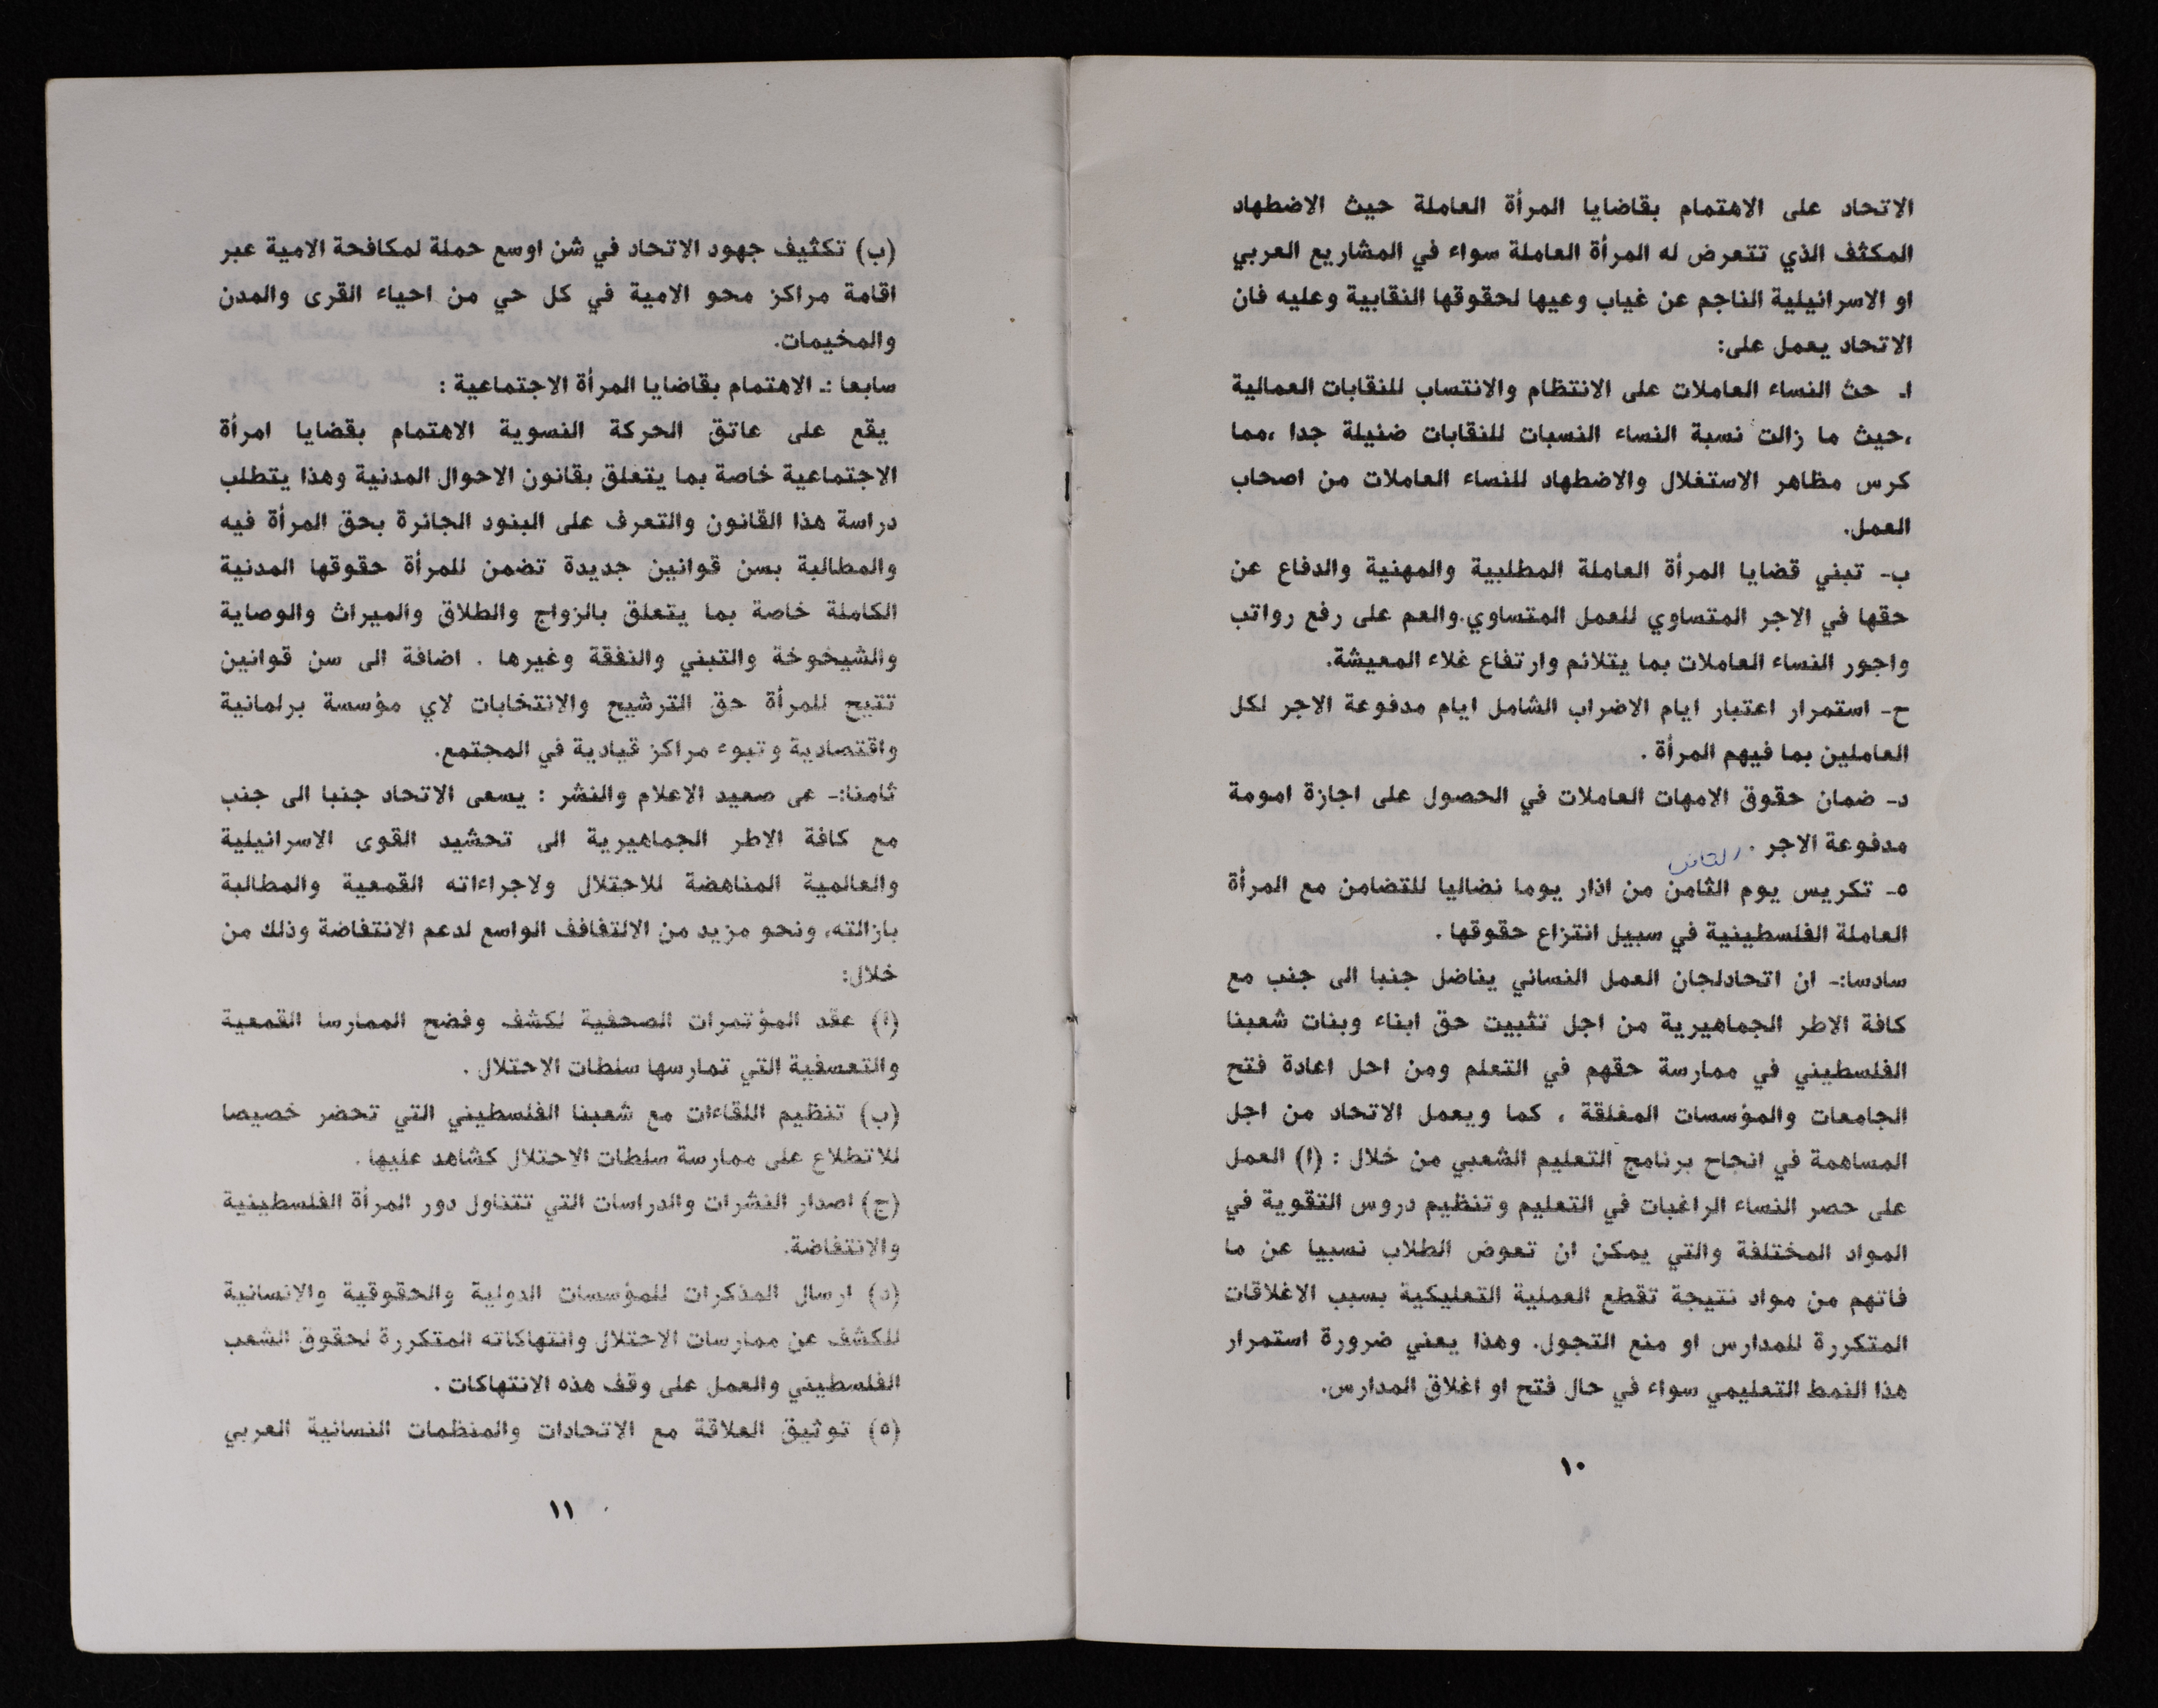 الاتحاد على الاهتمام بقاضايا المرأة العاملة حيث الاضطهاد
المكثف الذي تتعرض له المرأة العاملة سواء في المشاريع العربي
او الاسرائيلية الناجم عن غياب وعيها لحقوقها النقابية وعليه فان
الاتحاد يعمل على:
ا- حث النساء العاملات على الانتظام والانتساب للنقابات العمالية
،حيث ما زالت نسبة النساء النسبات للنقابات ضئيلة جدا ،مما
كرس مظاهر الاستغلال والاضطهاد للنساء العاملات من اصحاب
العمل.
ب- تبني قضايا المرأة العاملة المطلبية والمهنية والدفاع عن
حقها في الاجر المتساوي للعمل المتساوي.والعم على رفع رواتب
واجور النساء العاملات بما يتلائم وارتفاع غلاء المعيشة.
ح- استمرار اعتبار ايام الاضراب الشامل ايام مدفوعة الاجر لكل
العاملين بما فيهم المرأة .
د- ضمان حقوق الامهات العاملات في الحصول على اجازة امومة
مدفوعة الاجر .
٥- تكريس يوم الثامن من اذار يوما نضاليا للتضامن مع المرأة
العاملة الفلسطينية في سبيل انتزاع حقوقها .
سادسا:- ان اتحادلجان العمل النسائي يناضل جنبا الى جنب مع
كافة الاطر الجماهيرية من اجل تثبيت حق ابناء وبنات شعبنا
الفلسطيني في ممارسة حقهم في التعلم ومن احل اعادة فتح
الجامعات والمؤسسات المغلقة ، كما ويعمل الاتحاد من اجل
المساهمة في انجاح برنامج التعليم الشعبي من خلال : (ا) العمل
على حصر النساء الراغبات في التعليم وتنظيم دروس التقوية في
المواد المختلفة والتي يمكن ان تعوض الطلاب نسبيا عن ما
فاتهم من مواد نتيجة تقطع العملية التعليكية بسبب الاغلاقات
المتكررة للمدارس او منع التجول. وهذا يعني ضرورة استمرار
هذا النمط التعليمي سواء في حال فتح او اغلاق المدارس.
١٠
(ب) تكثيف جهود الاتحاد في شن اوسع حملة لمكافحة الامية عبر
اقامة مراكز محو الامية في كل حي من احياء القرى والمدن
والمخيمات.
سابعا :ـ الاهتمام بقاضايا المرأة الاجتماعية :
يقع على عاتق الحركة النسوية الاهتمام بقضايا امرأة
الاجتماعية خاصة بما يتعلق بقانون الاحوال المدنية وهذا يتطلب
دراسة هذا القانون والتعرف على البنود الجائرة بحق المرأة فيه
والمطالبة بسن قوانين جديدة تضمن للمرأة حقوقها المدنية
الكاملة خاصة بما يتعلق بالزواج والطلاق والميراث والوصاية
والشيخوخة والتبني والنفقة وغيرها . اضافة الى سن قوانين
تتيح للمرأة حق الترشيح والانتخابات لاي مؤسسة برلمانية
واقتصادية وتبوء مراكز قيادية في المجتمع.
ثامنا:- عى صعيد الاعلام والنشر : يسعى الاتحاد جنبا الى جنب
مع كافة الاطر الجماهيرية الى تحشيد القوى الاسرائيلية
والعالمية المناهضة للاحتلال ولاجراءاته القمعية والمطالبة
بازالته، ونحو مزيد من الالتفافف الواسع لدعم الانتفاضة وذلك من
خلال:
(ا) عقد المؤتمرات الصحفية لكشف وفضح الممارسا القمعية
والتعسفية التي تمارسها سلطات الاحتلال .
(ب) تنظيم اللقاءات مع شعبنا الفلسطيني التي تحضر خصيصا
للاتطلاع على ممارسة سلطات الاحتلال كشاهد عليها .
(ج) اصدار النشرات والدراسات التي تتناول دور المرأة الفلسطينية
والانتفاضة.
(د) ارسال المذكرات للمؤسسات الدولية والحقوقية والانسانية
للكشف عن ممارسات الاحتلال وانتهاكاته المتكررة لحقوق الشعب
الفلسطيني والعمل على وقف هذه الانتهاكات .
(٥) توثيق العلاقة مع الاتحادات والمنظمات النسائية العربي
١١